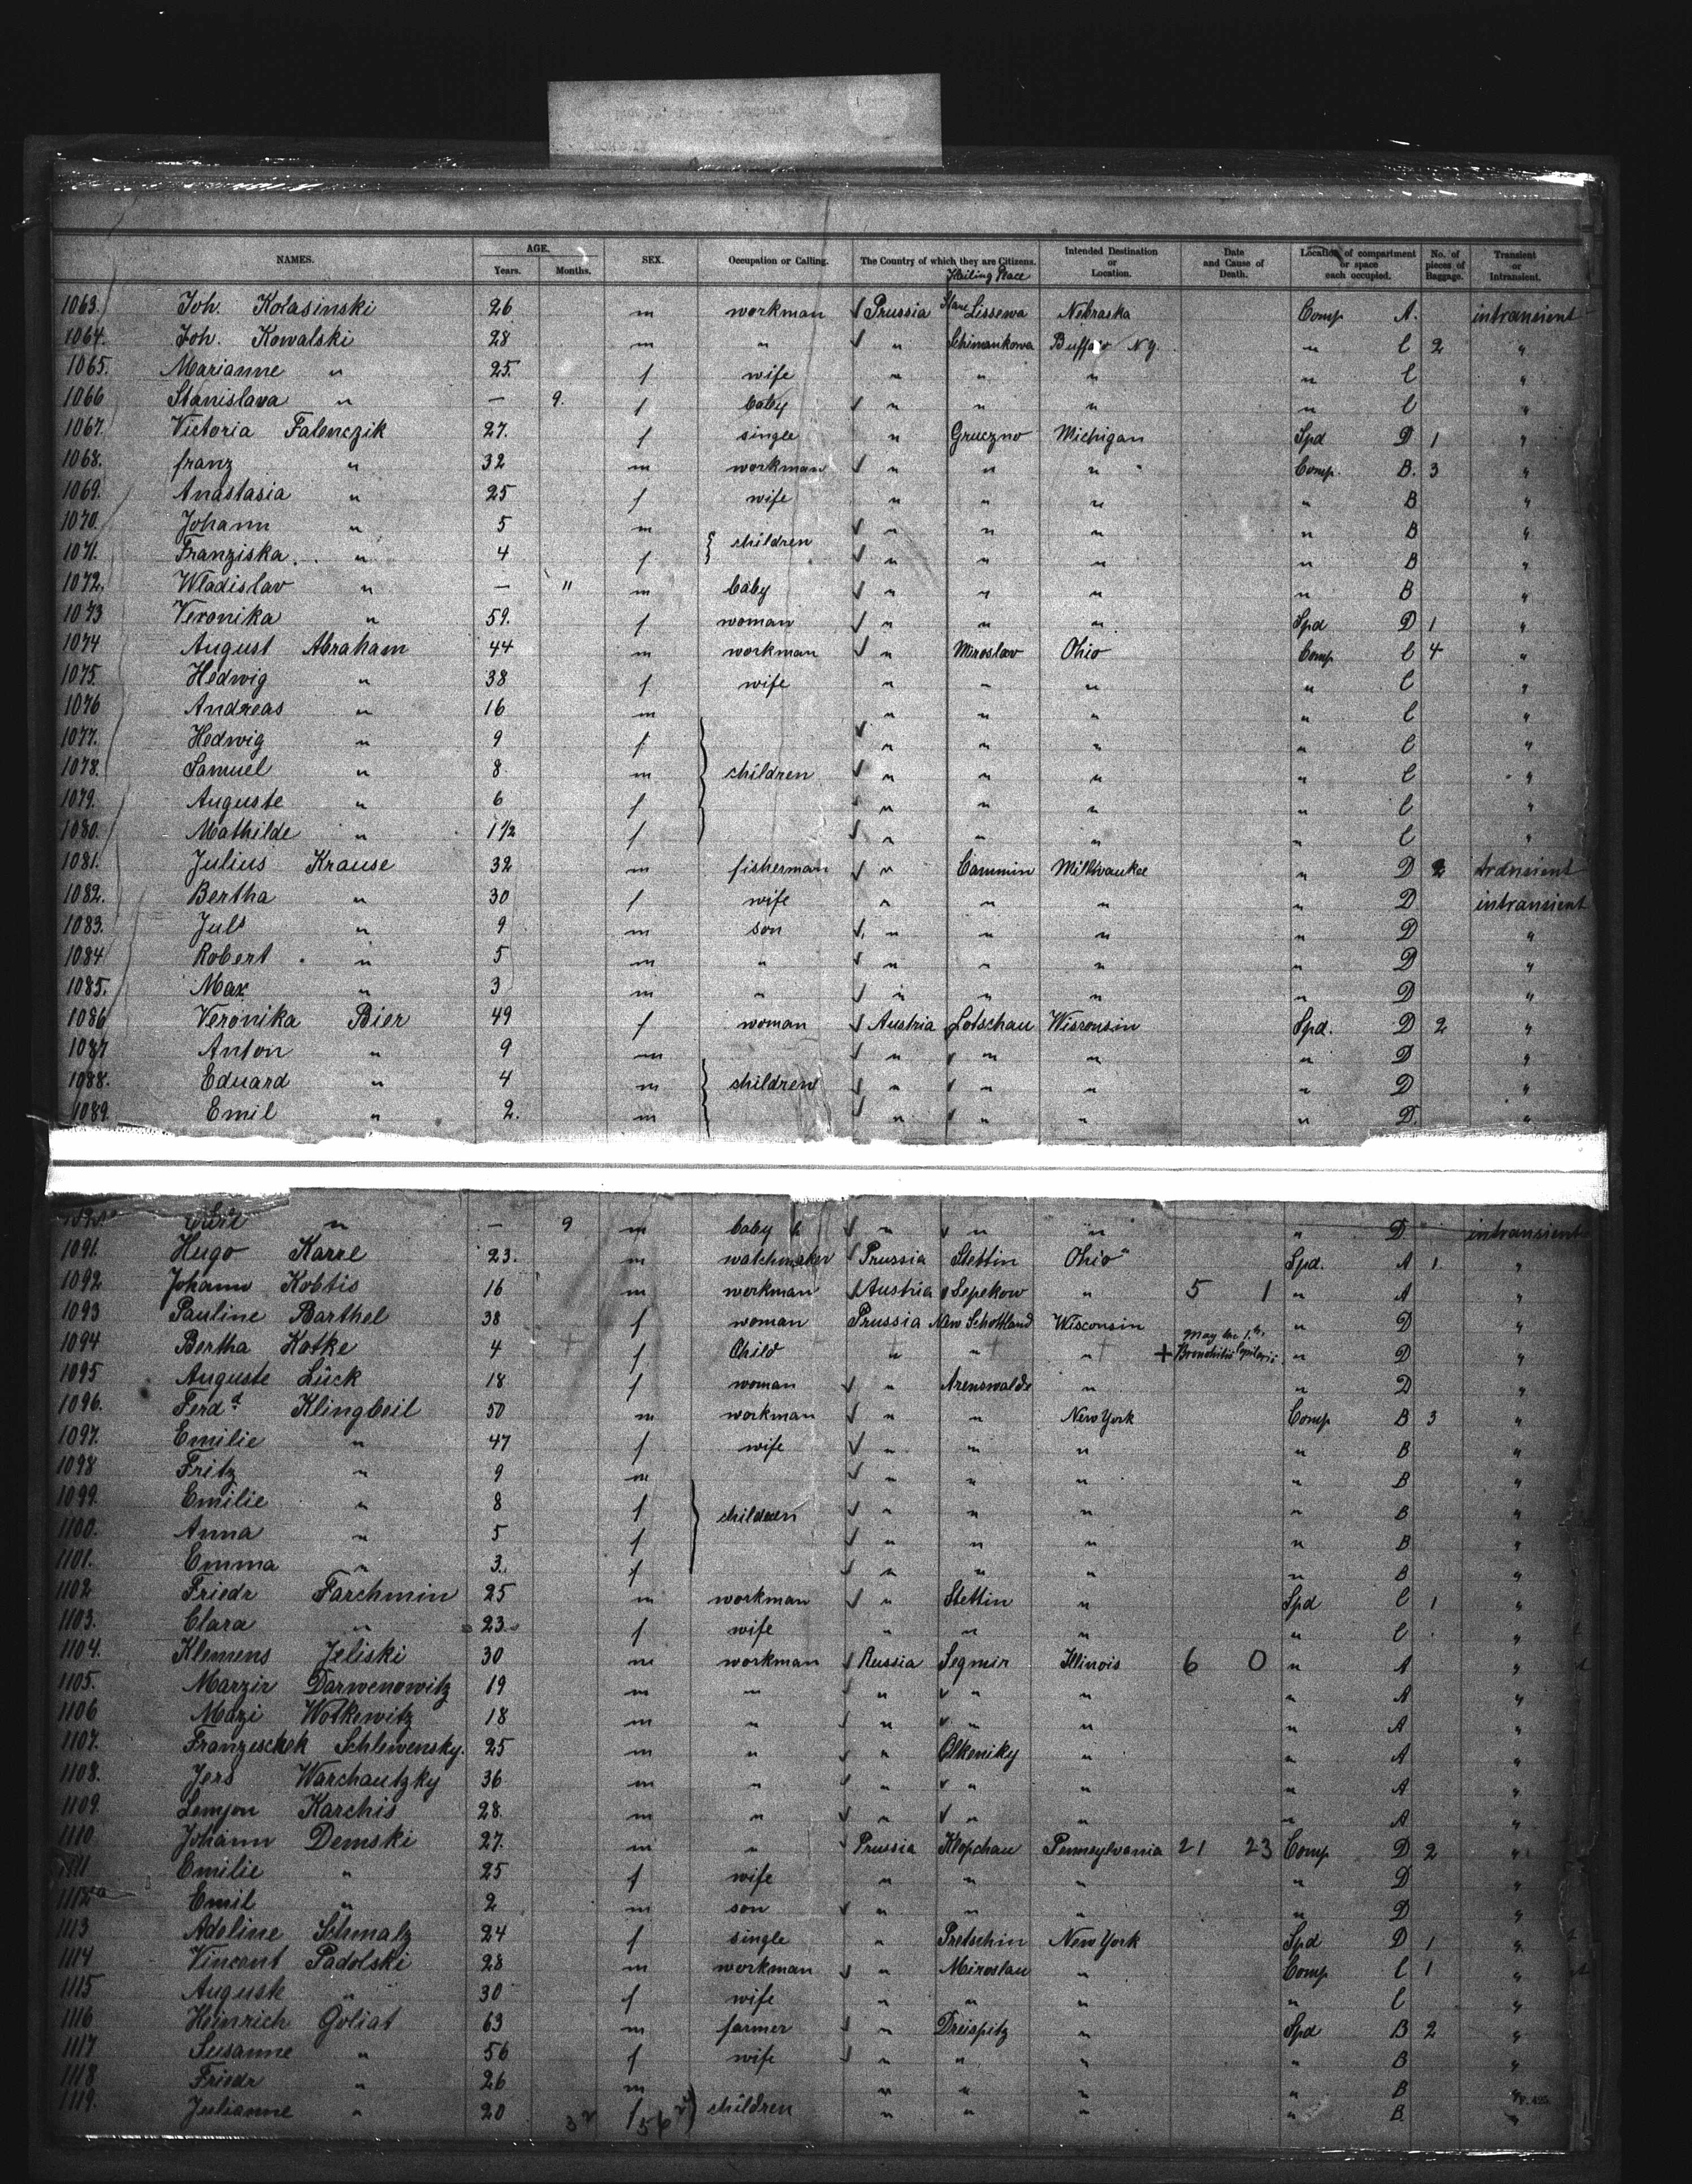 NAMES. AGE. Years. Months. SEX. Occupation or Calling. The Country of which they are Citizens. Intended Destination or Location. Date and Cause of Death. Location of compartment or space each occupied. No. of pieces of Baggage. Transient or Intransient.
1063. Joh. Kolasinski 26 m workman ✓ Prussia Lissewa Nebraska Comp A. intransient
1064. Joh. Kowalski 28 m " ✓ " Schimankowa Buffalo N.Y. " C 2 "
1065. Marianne " 25. f wife " " " " C "
1066 Stanislava " — 9. f baby ✓ " " " " C "
1067. Victoria Falenczik 27. f single " Gruczno Michigan Spd D 1 "
1068. franz " 32 m workman ✓ " " " Comp. B. 3 "
1069. Anastasia " 25 f wife " " " " B "
1070. Johann " 5 m { children ✓ " " " " B "
1071. Franziska " 4 f ✓ " " " " B "
1072. Wladislav " — " m baby ✓ " " " " B "
1073 Veronika " 59. f woman ✓ " " " Spd D 1 "
1074 August Abraham 44 m workman ✓ " Miroslav Ohio Comp C 4 "
1075. Hedwig " 38 f wife " " " " C "
1076 Andreas " 16 m " " " " C "
1077. Hedwig " 9 f ✓ " " " " C "
1078. Samuel " 8. m } children ✓ " " " " C "
1079. Auguste " 6 f " " " " C "
1080. Mathilde " 1 1/2 f ✓ " " " " C "
1081. Julius Krause 32 m fisherman ✓ " Cammin Milkwaukee " D 2 transient
1082. Bertha " 30 f wife " " " " D intransient
1083. Juls " 9 m son ✓ " " " " D "
1084 Robert " 5 m " ✓ " " " " D "
1085. Max " 3 m " ✓ " " " " D "
1086 Veronika Bier 49 f woman ✓ Austria Lotschau Wisconsin Spd. D 2 "
1087 Anton " 9 m ✓ " ✓ " " " D "
1088. Eduard " 4 m { children ✓ " ✓ " " " D "
1089. Emil " 2. m ✓ " ✓ " " " D. "
" — 9 m baby ✓ " ✓ " " " D intransient
1091. Hugo Karre 23. m watchmaker ✓ Prussia Stettin Ohio Spd. A 1 "
1092 Johann Kobtis 16 m workman ✓ Austria Sepekow " 5 1 " A "
1093 Pauline Barthel 38 f woman Prussia New Schottland Wisconsin " D "
1094 Bertha Katke 4 f Child " " " + May 1st Bronchitis " D "
1095 Auguste Lück 18 f woman ✓ " Arenswalde " " D "
1096. Ferdd Klingbeil 50 m workman ✓ " " New York Comp B 3 "
1097. Emilie " 47 f wife ✓ " " " " B "
1098 Fritz " 9 m ✓ " " " " B "
1099. Emilie " 8 f } children ✓ " " " " B "
1100. Anna " 5 f ✓ " " " " B "
1101. Emma " 3. f ✓ " " " " B "
1102 Friedr Farchmin 25 m workman ✓ " Stettin " Spd C 1 "
1103. Clara " 23 f wife " " " " C "
1104. Klemens Jeliski 30 m workman ✓ Russia Segmir Illinois 6 0 " A "
1105. Marzir Darwenowitz 19 m " ✓ " ✓ " " " A "
1106 Mazi Wotkewitz 18 m " ✓ " ✓ " " " A "
1107. Franzeschek Schlewensky. 25 m " ✓ " Olkeniky " " A "
1108. Jers Warchautzky 36 m " ✓ " ✓ " " " A "
1109. Lemjon Karchis 28. m " ✓ " ✓ " " " A "
1110 Johann Demski 27. m " Prussia Klopchau Pennsylvania 21 23 Comp D 2 "
1111 Emilie " 25 f wife " " " " D "
1112 Emil " 2 m son ✓ " " " " D "
1113 Adeline Schmalz 24 f single " Pretschin New York Spd D 1 "
1114 Vincent Padolski 28 m workman ✓ " Miroslau " Comp C 1 "
1115 Auguste " 30 f wife " " " " C "
1116 Heinrich Goliat 63 m farmer ✓ " Dreispitz " Spd B 2 "
1117 Susanne " 56 f wife ✓ " " " " B "
1118 Friedr " 26 m " " " " B "
1119. Julianne " 20 f } children " " " " B. "